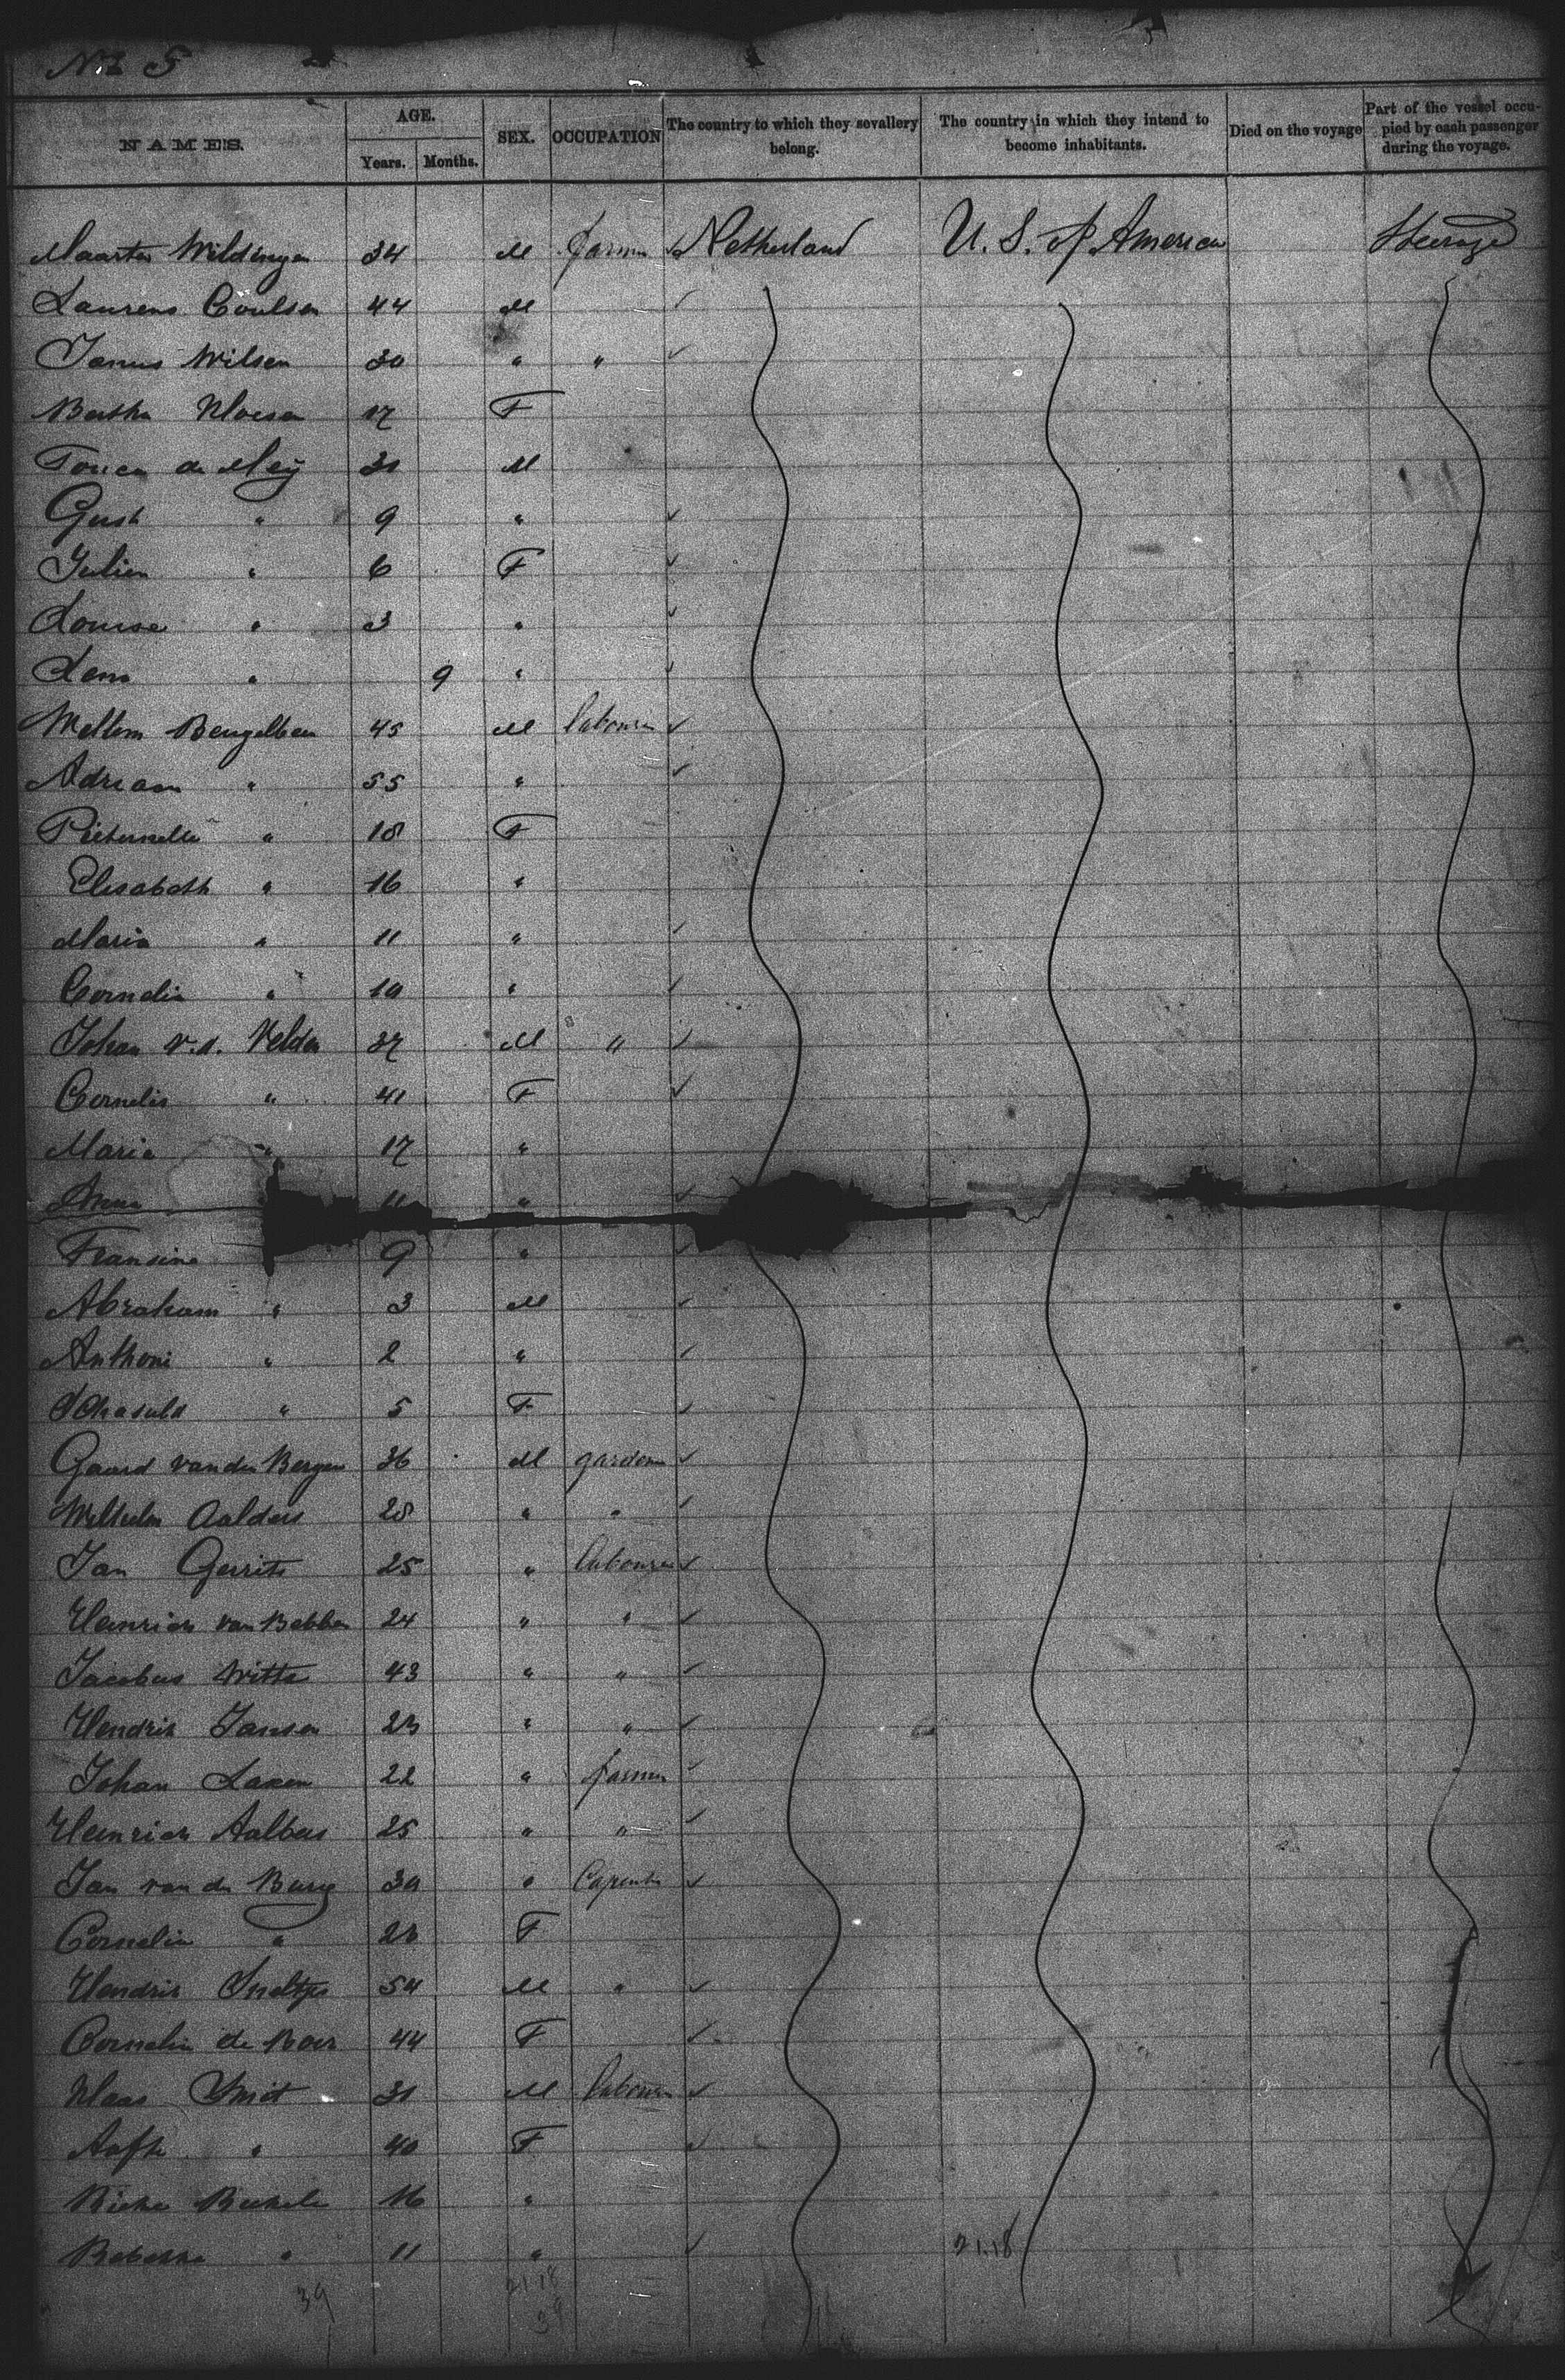 No 5
NAMES. AGE. Years. Months. SEX. OCCUPATION The country to which they sevallery belong. The country in which they intend to become inhabitants. Died on the voyage Part of the vessel occupied by each passenger during the voyage.
Maarten Wildingen 34 M farmer Netherland U. S. of America Steerage
Laurens Coulsen 44 M
Janus Wilsen 30 " "
Bertha Kloesen 17 F
de Meij 31 M
Gust " 9 "
Julien " 6 F
Louise " 3 "
Lena " 9 "
Willem Bengelben 45 M labourer
Adriaan " 55 "
Pieternella " 18 F
Elisabeth " 16 "
Maria " 11 "
Cornelia " 10 "
Johan v.d. Velden 37 M "
Cornelia " 41 F
Maria " 17 "
Anna 11 "
Fransina 9 "
Abraham " 3 M
Anthoni " 2 "
" 5 F
Gaard van den Bergen 36 M gardener
Wilhelm Aalders 28 " "
Jan Gerrits 25 " labourer
Heinrich van Bebben 24 " "
Jacobus Witte 43 " "
Hendrik Jansen 23 " "
Johan Laken 22 " farmer
Heinrich Aalbers 25 " "
Jan van den Burg 30 " Carpenter
Cornelia " 28 F
Hendrik Sneltjes 54 M "
Cornelia de Boer 44 F
Klaas Smit 31 M labourer
Aafke " 40 F
16 "
Rebekka " 11 " 21.18
39 21 18
39